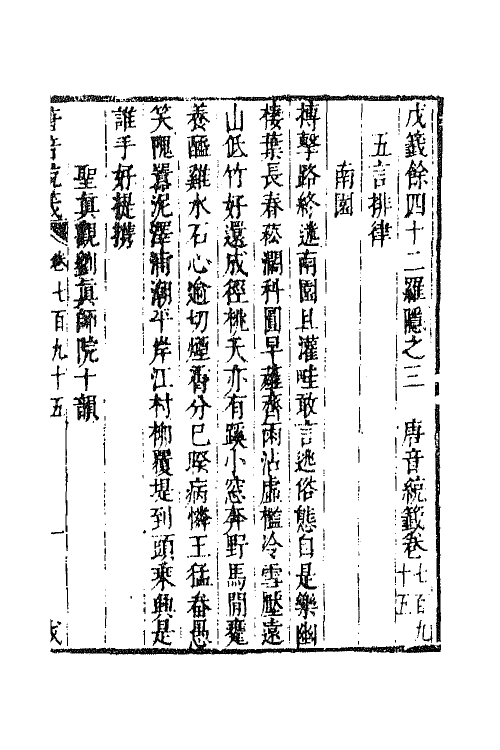 戊籤餘四十二羅隱之三　唐音統籤卷七百九十五
五言排律
南園
搏擊路終迷南園且灌畦敢言逃俗態自是樂幽
棲葉長春菘濶科圓早薤齊雨沾虛檻冷雪壓遠
山低竹好還成徑桃夭亦有蹊小窓奔野馬閒甕
養醯雞水石心逾切煙霄分已暌病憐王猛畚愚
笑隗囂泥澤浦潮平岸江村柳覆堤到頭乘興是
誰手好提携
聖真觀劉真師院十韻
唐音統籤 卷七百九十五 一